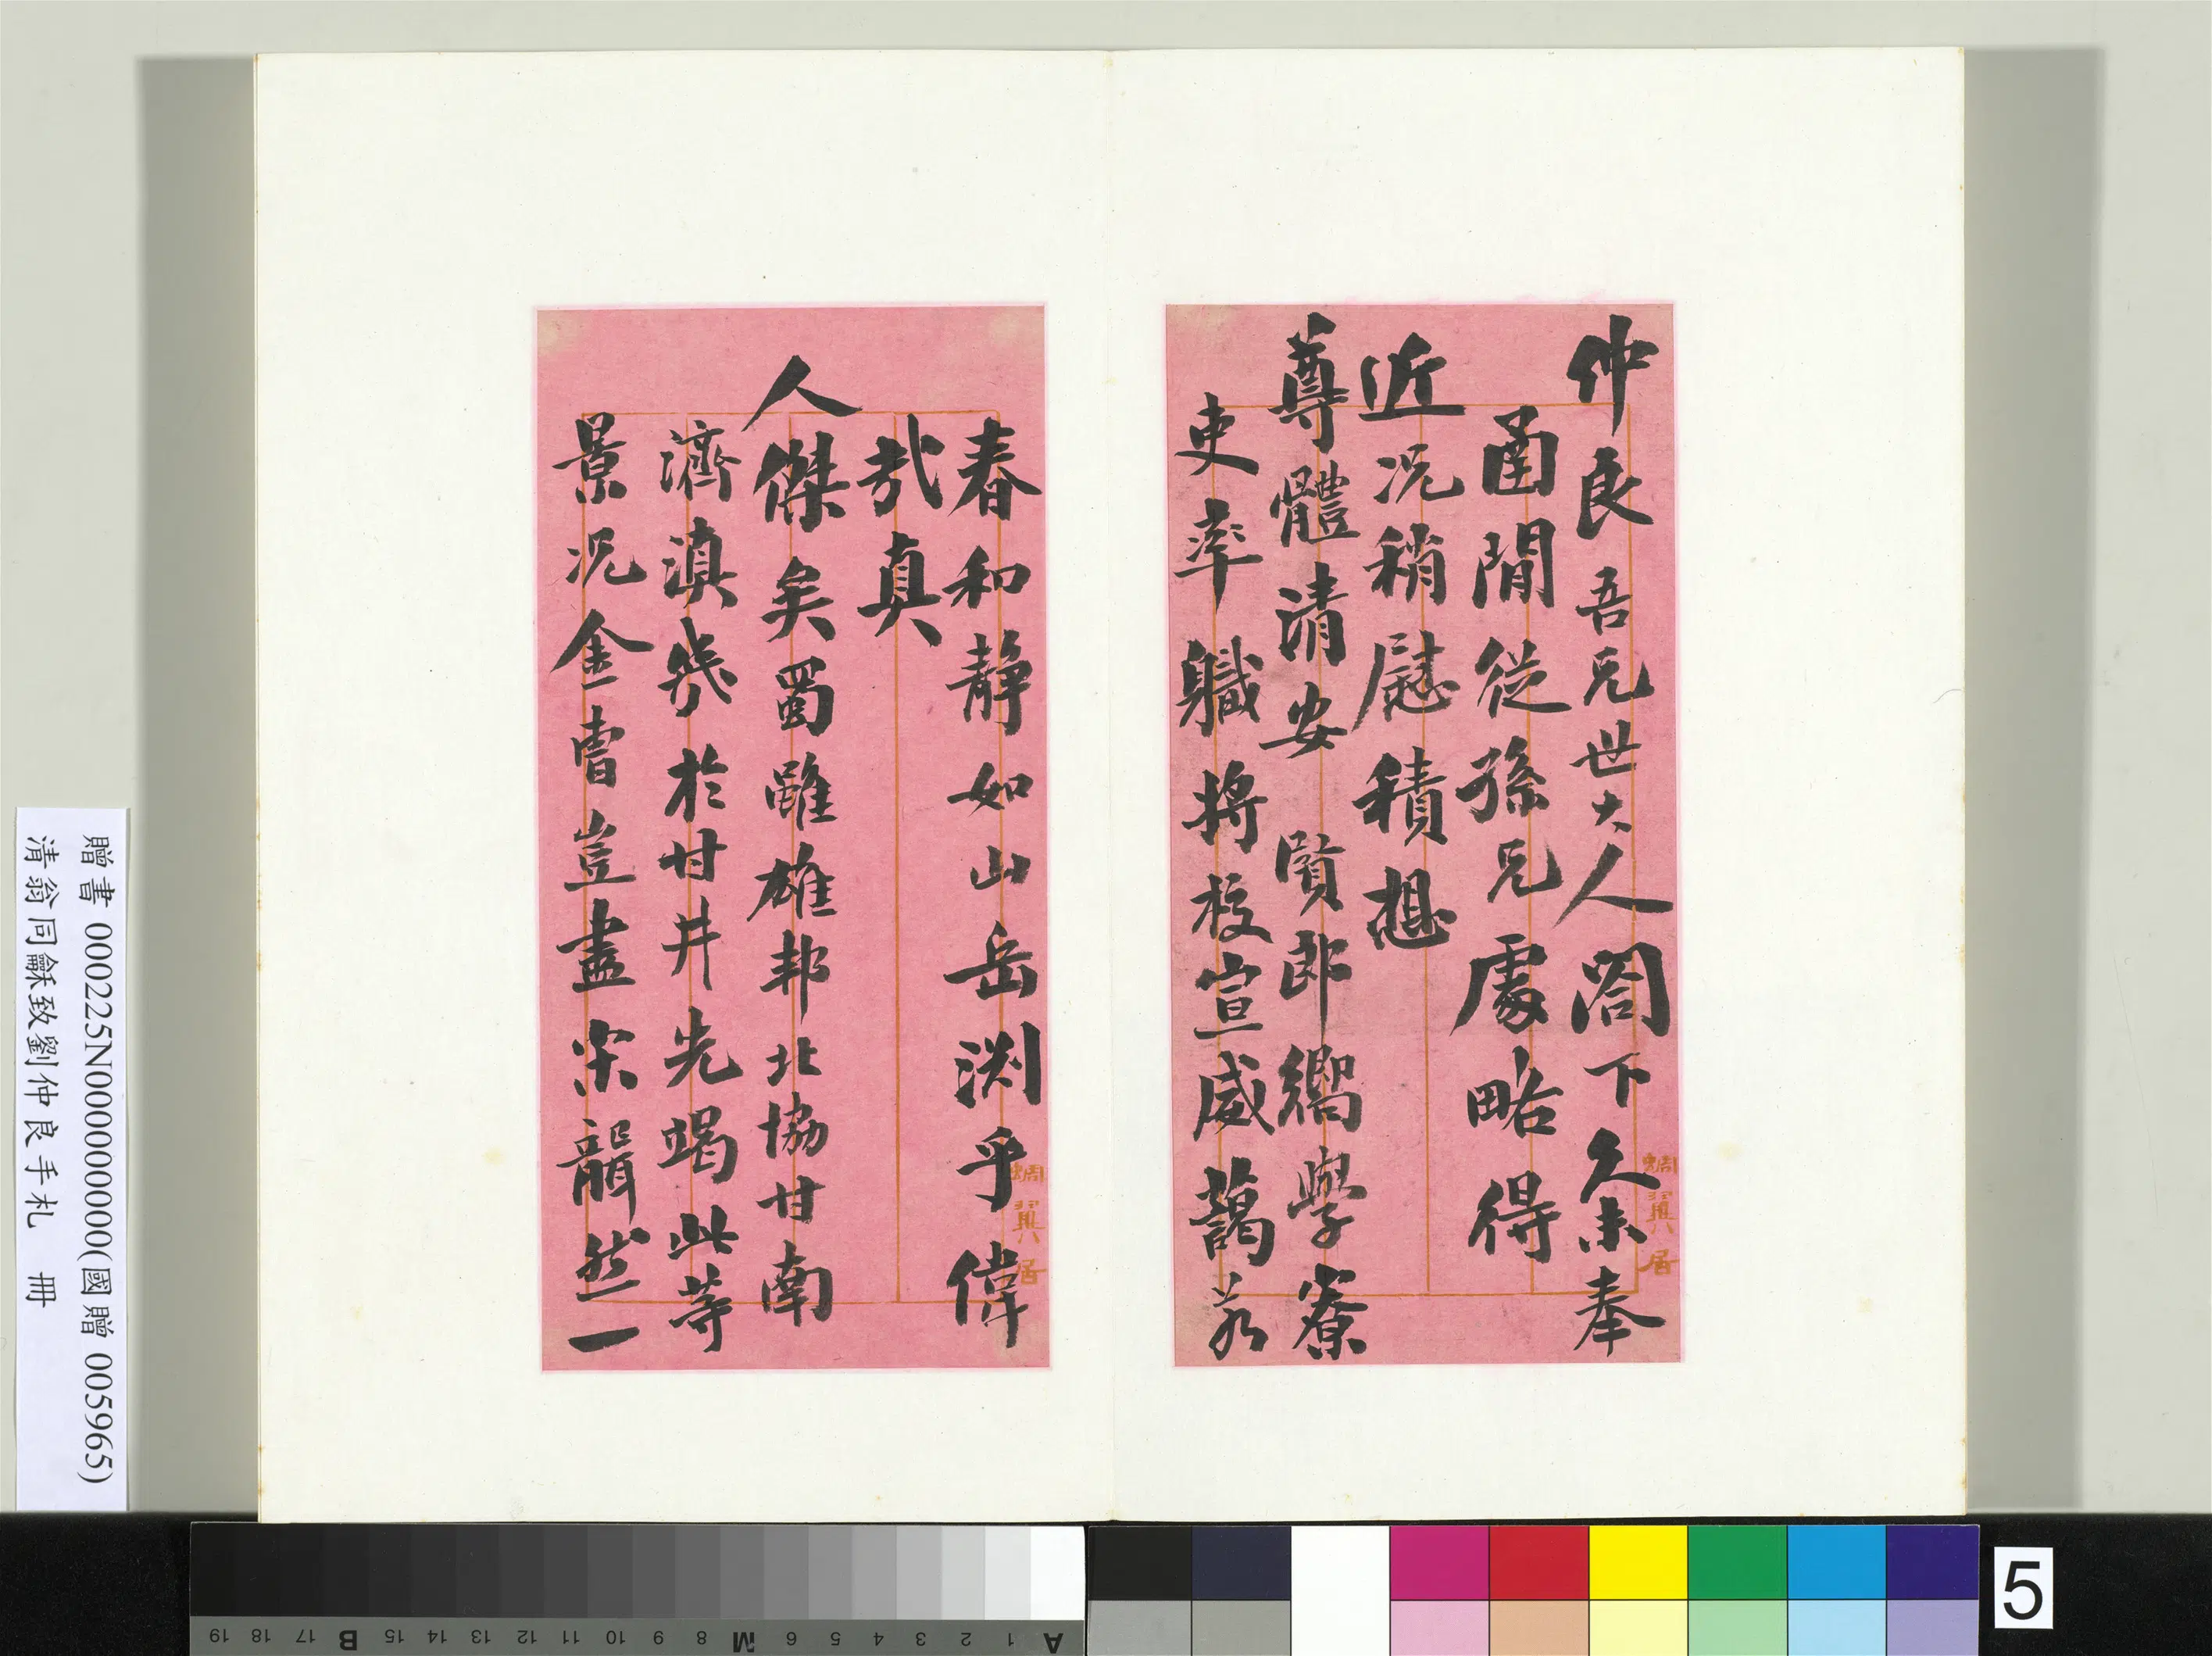 仲良吾兄世大人閤下久未奉
函閒從孫兄處略得
近况稍慰積想
尊體清安 賢郎嚮學寮
吏率職將校宣威藹若
春和靜如山岳淵乎偉
哉真
人傑矣蜀雖雄邦北協甘南
濟滇幾於甘井先竭此等
景况金曹豈盡宋聾然一
蜩翼居
蜩翼居
贈書 000225N000000000(國贈 005965)
清翁同龢致劉仲良手札 冊
A 1 2 3 4 5 6 M 8 9 10 11 12 13 14 15 B 17 18 19
5